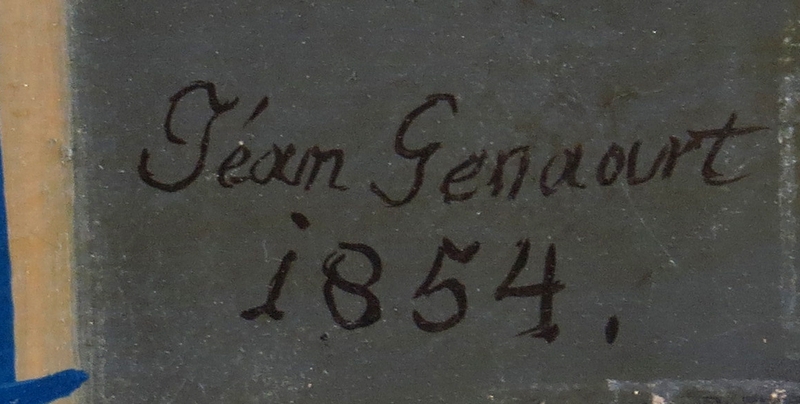 Jéan Genaourt
1854.